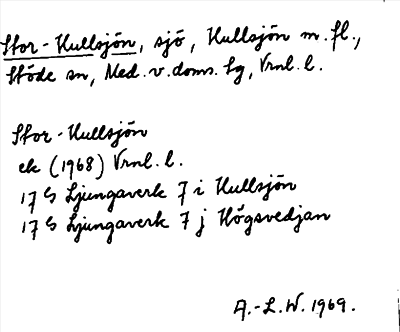 Stor-Hullsjön, sjö, Hullsjön m.fl.,
Stöde sn, Med.v.doms. tg, Vrnl. l.
Stor-Hullsjön
ek (1968) Vrnl. l.
17 G Ljungaverk 7 i Hullsjön
17 G Ljungaverk 7 j Högsvedjan
A.-L.W. 1969.